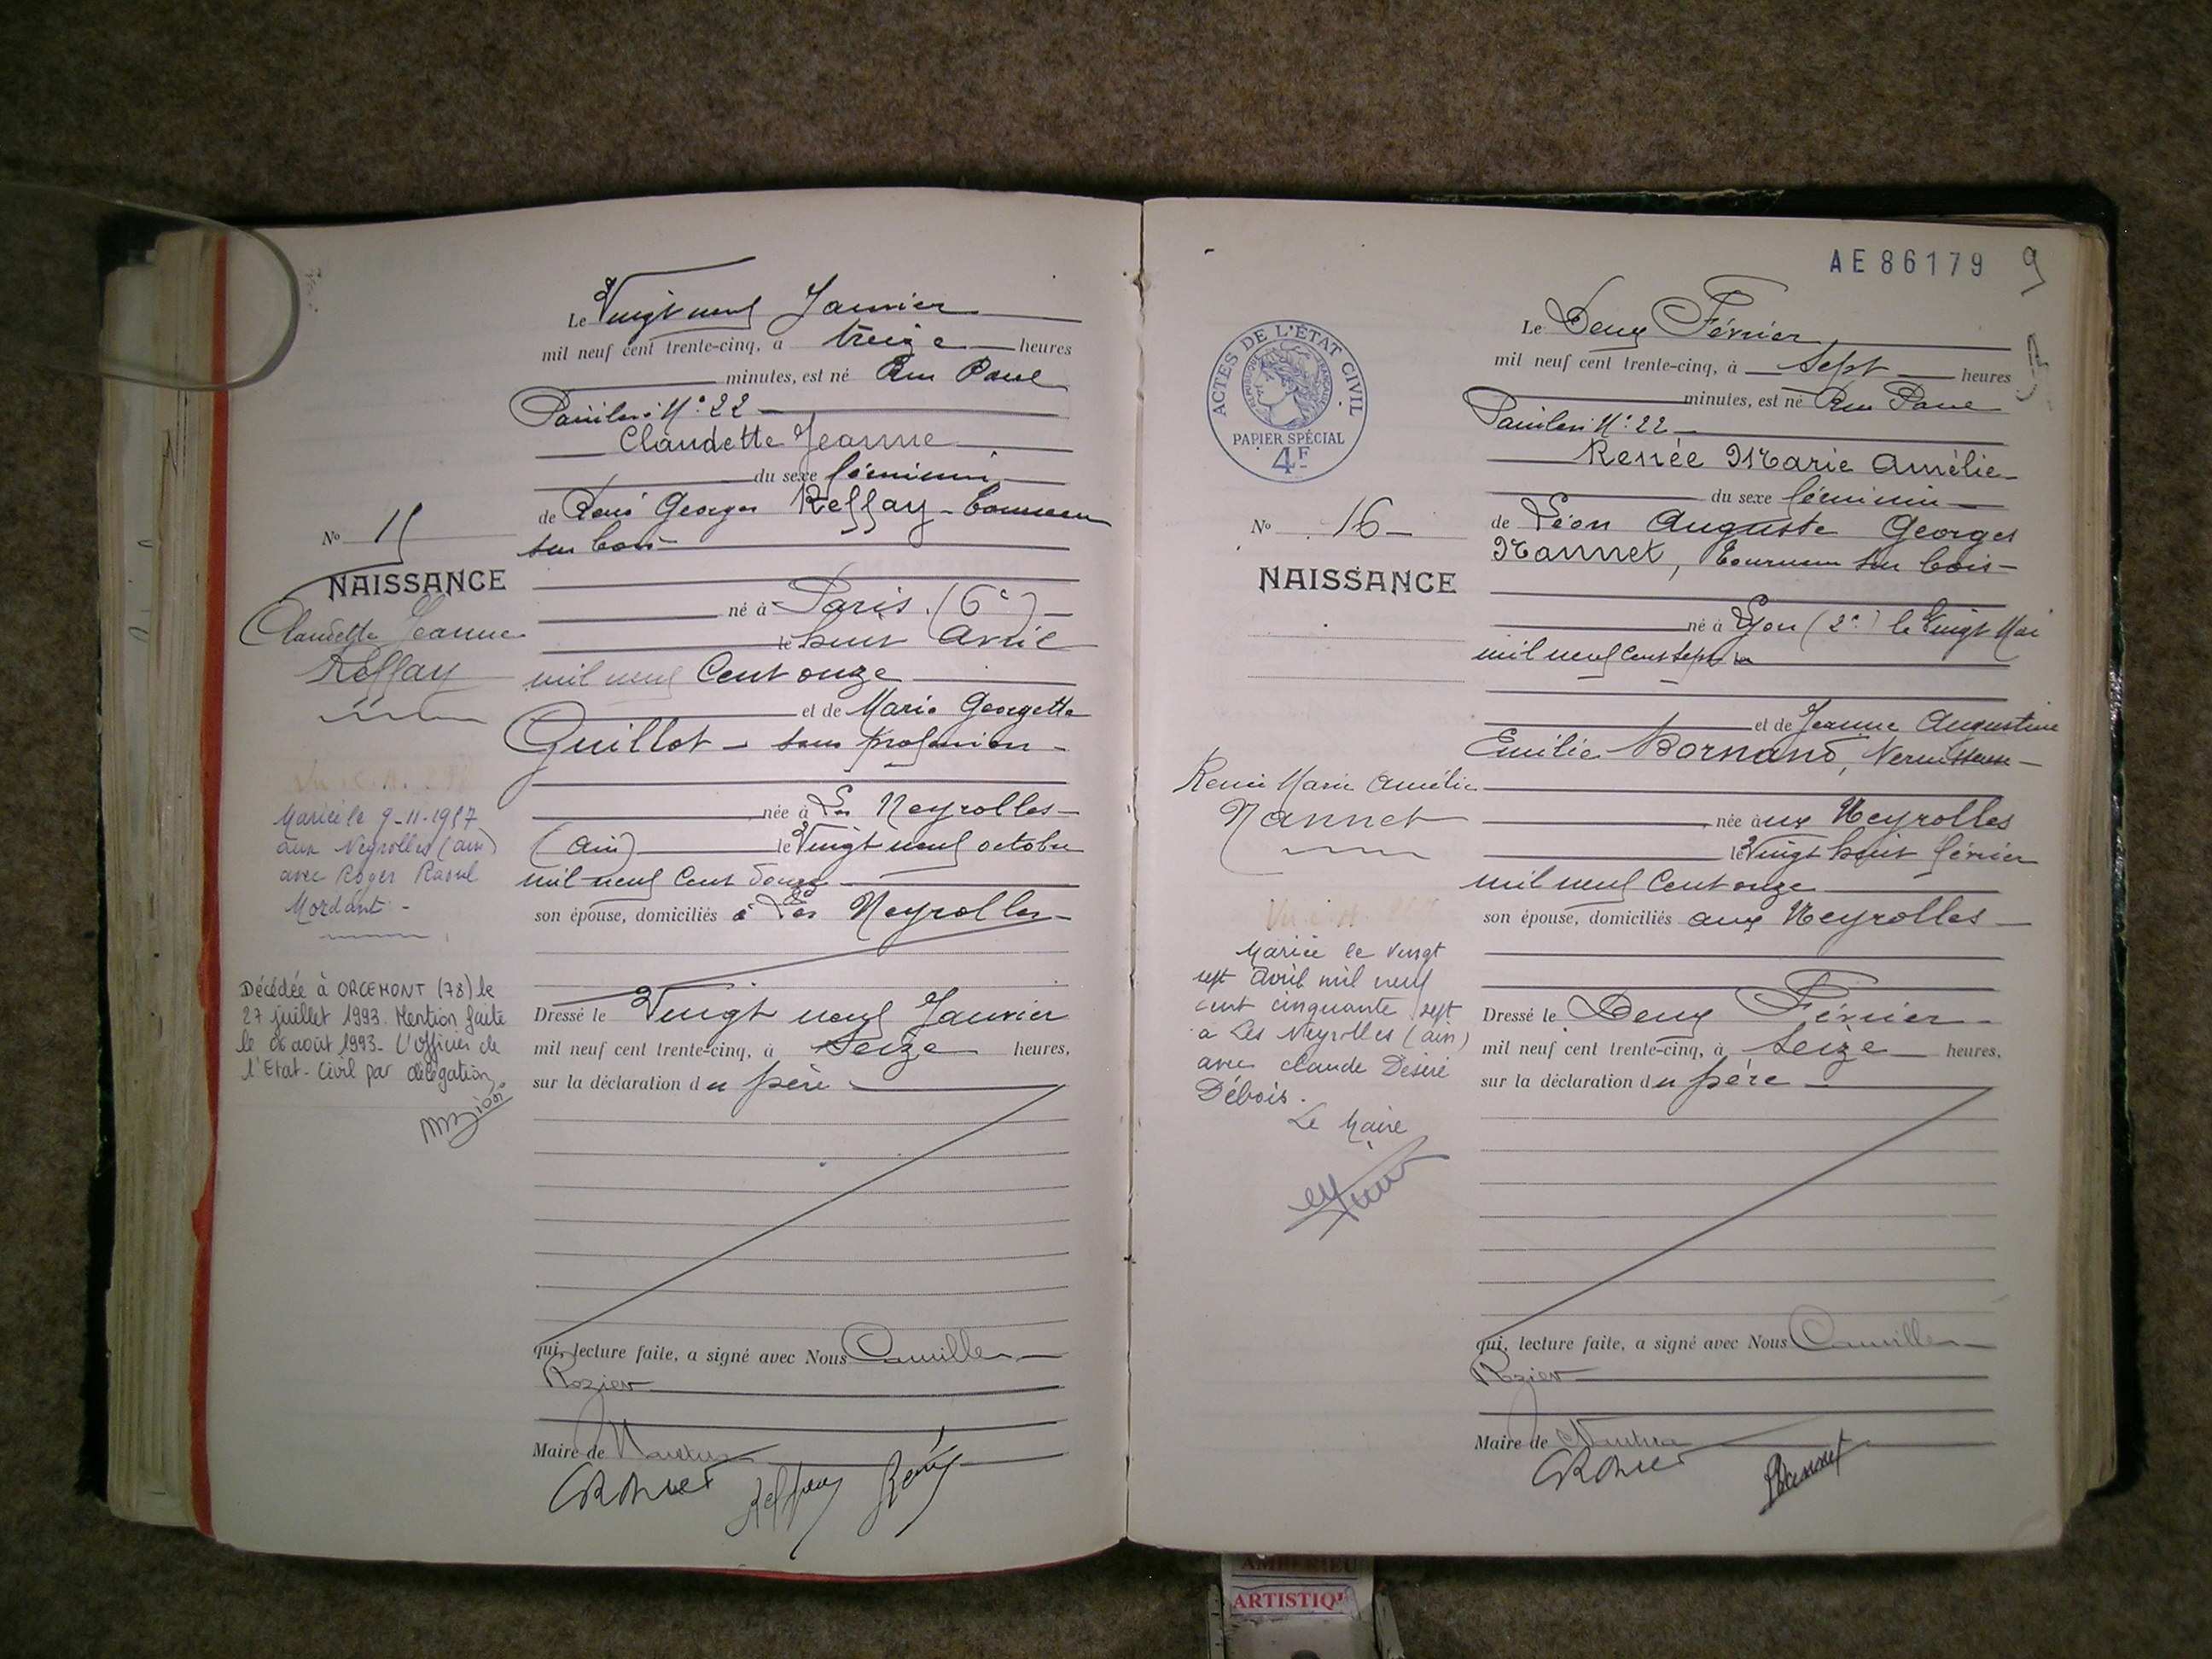 Le Vingt neuf Janvier
mil neuf cent trente-cinq, à treize heures
minutes, est né Rue Paul
Painlevé N° 22
Claudette Jeanne
du sexe féminin
de René Georges Reffay - Tourneur
sur bois
N° 15
NAISSANCE
né à Paris (6e)
Claudette Jeanne
Reffay
le huit Avril
mil neuf Cent onze
et de Marie Georgette
Guillot - sans profession -
née à Les Neyrolles
(Ain) le Vingt neuf octobre
mil neuf Cent douze
son épouse, domiciliés à Les Neyrolles
Mariée le 9-11-1957
aux Neyrolles (ain)
avec Roger Raoul
Mordant -
Décédée à ORCEMONT (78) le
27 juillet 1993. Mention faite
le 06 août 1993 - L'Officier de
l'Etat-Civil par délégation,
Dressé le Vingt neuf Janvier
mil neuf cent trente-cinq, à Seize heures,
sur la déclaration du père
qui, lecture faite, a signé avec Nous Camille
Rozier
Maire de Nantua
CRozier Reffay René
AE 86179 9
ACTES DE L'ÉTAT CIVIL
RÉPUBLIQUE FRANÇAISE
PAPIER SPÉCIAL
4F
Le Deux Février
mil neuf cent trente-cinq, à Sept heures
minutes, est né Rue Paul
Painlevé N° 22
Renée Marie Amélie
du sexe féminin
N° 16
NAISSANCE
de Léon Auguste Georges
Nannet, Tourneur sur bois
né à Lyon (2e) le Vingt Mai
mil neuf Cent Sept
et de Jeanne Augustine
Emilie Bornand, Vernisseuse
Renée Marie Amélie
Nannet
née aux Neyrolles
le Vingt huit février
mil neuf Cent onze
son épouse, domiciliés aux Neyrolles
Mariée le vingt
sept Avril mil neuf
cent cinquante sept
a Les Neyrolles (ain)
avec Claude Désiré
Débois.
Le Maire
Dressé le Deux Février
mil neuf cent trente-cinq, à Seize heures,
sur la déclaration du père
qui, lecture faite, a signé avec Nous Camille
Rozier
Maire de Nantua
CRozier Nannet
AMBERIEU
ARTISTIQ